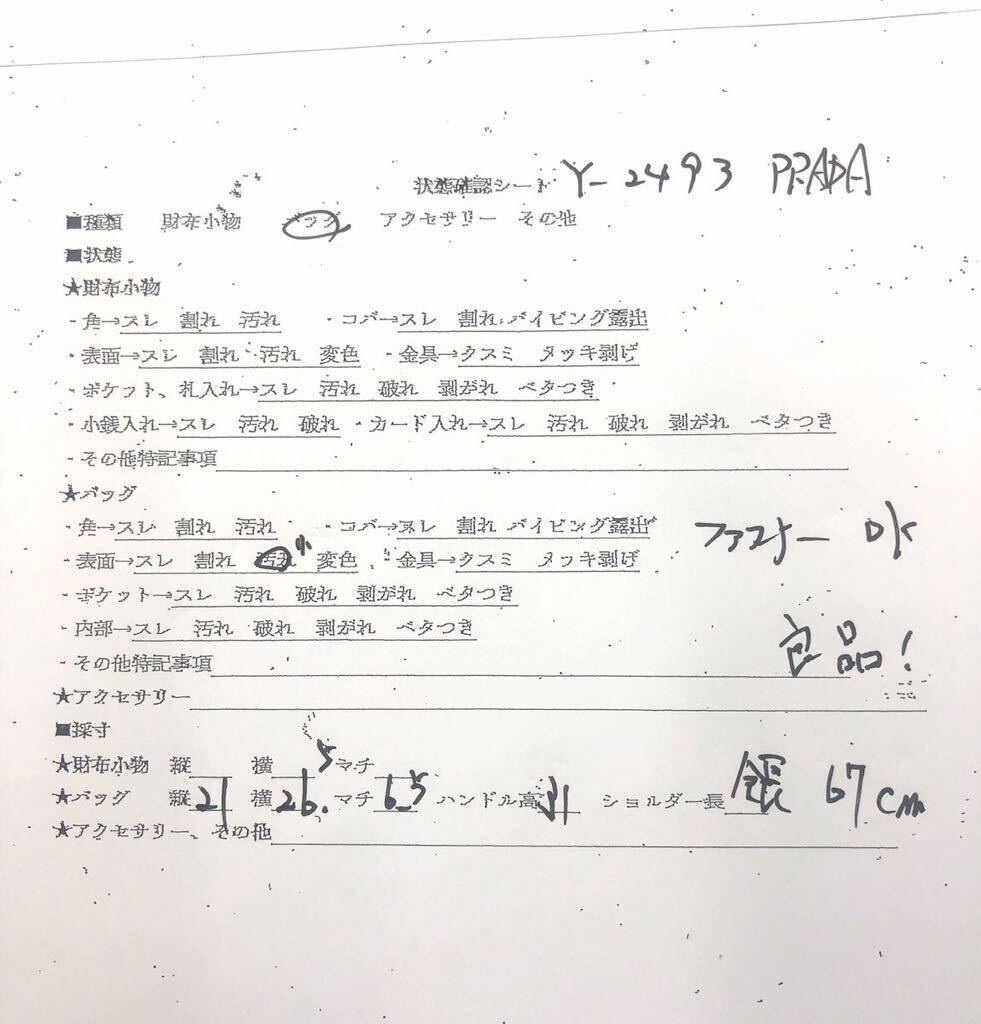 状態確認シート Y-2493 PRADA
■種類 財布小物 バッグ アクセサリー その他
■状態
★財布小物
・角→スレ 割れ 汚れ ・コバ→スレ 割れ パイピング露出
・表面→スレ 割れ 汚れ 変色 ・金具→クスミ メッキ剥げ
・ポケット、札入れ→スレ 汚れ 破れ 剥がれ ベタつき
・小銭入れ→スレ 汚れ 破れ ・カード入れ→スレ 汚れ 破れ 剥がれ ベタつき
・その他特記事項
★バッグ
・角→スレ 割れ 汚れ ・コバ→スレ 割れ パイピング露出
ファスナー OK
・表面→スレ 割れ 汚れ 小 変色 ・金具→クスミ メッキ剥げ
・ポケット→スレ 汚れ 破れ 剥がれ ベタつき
・内部→スレ 汚れ 破れ 剥がれ ベタつき
良品!
・その他特記事項
★アクセサリー
■採寸
★財布小物 縦 横 マチ
★バッグ 縦21 横26.5 マチ6.5 ハンドル高31 ショルダー長 67cm
★アクセサリー、その他